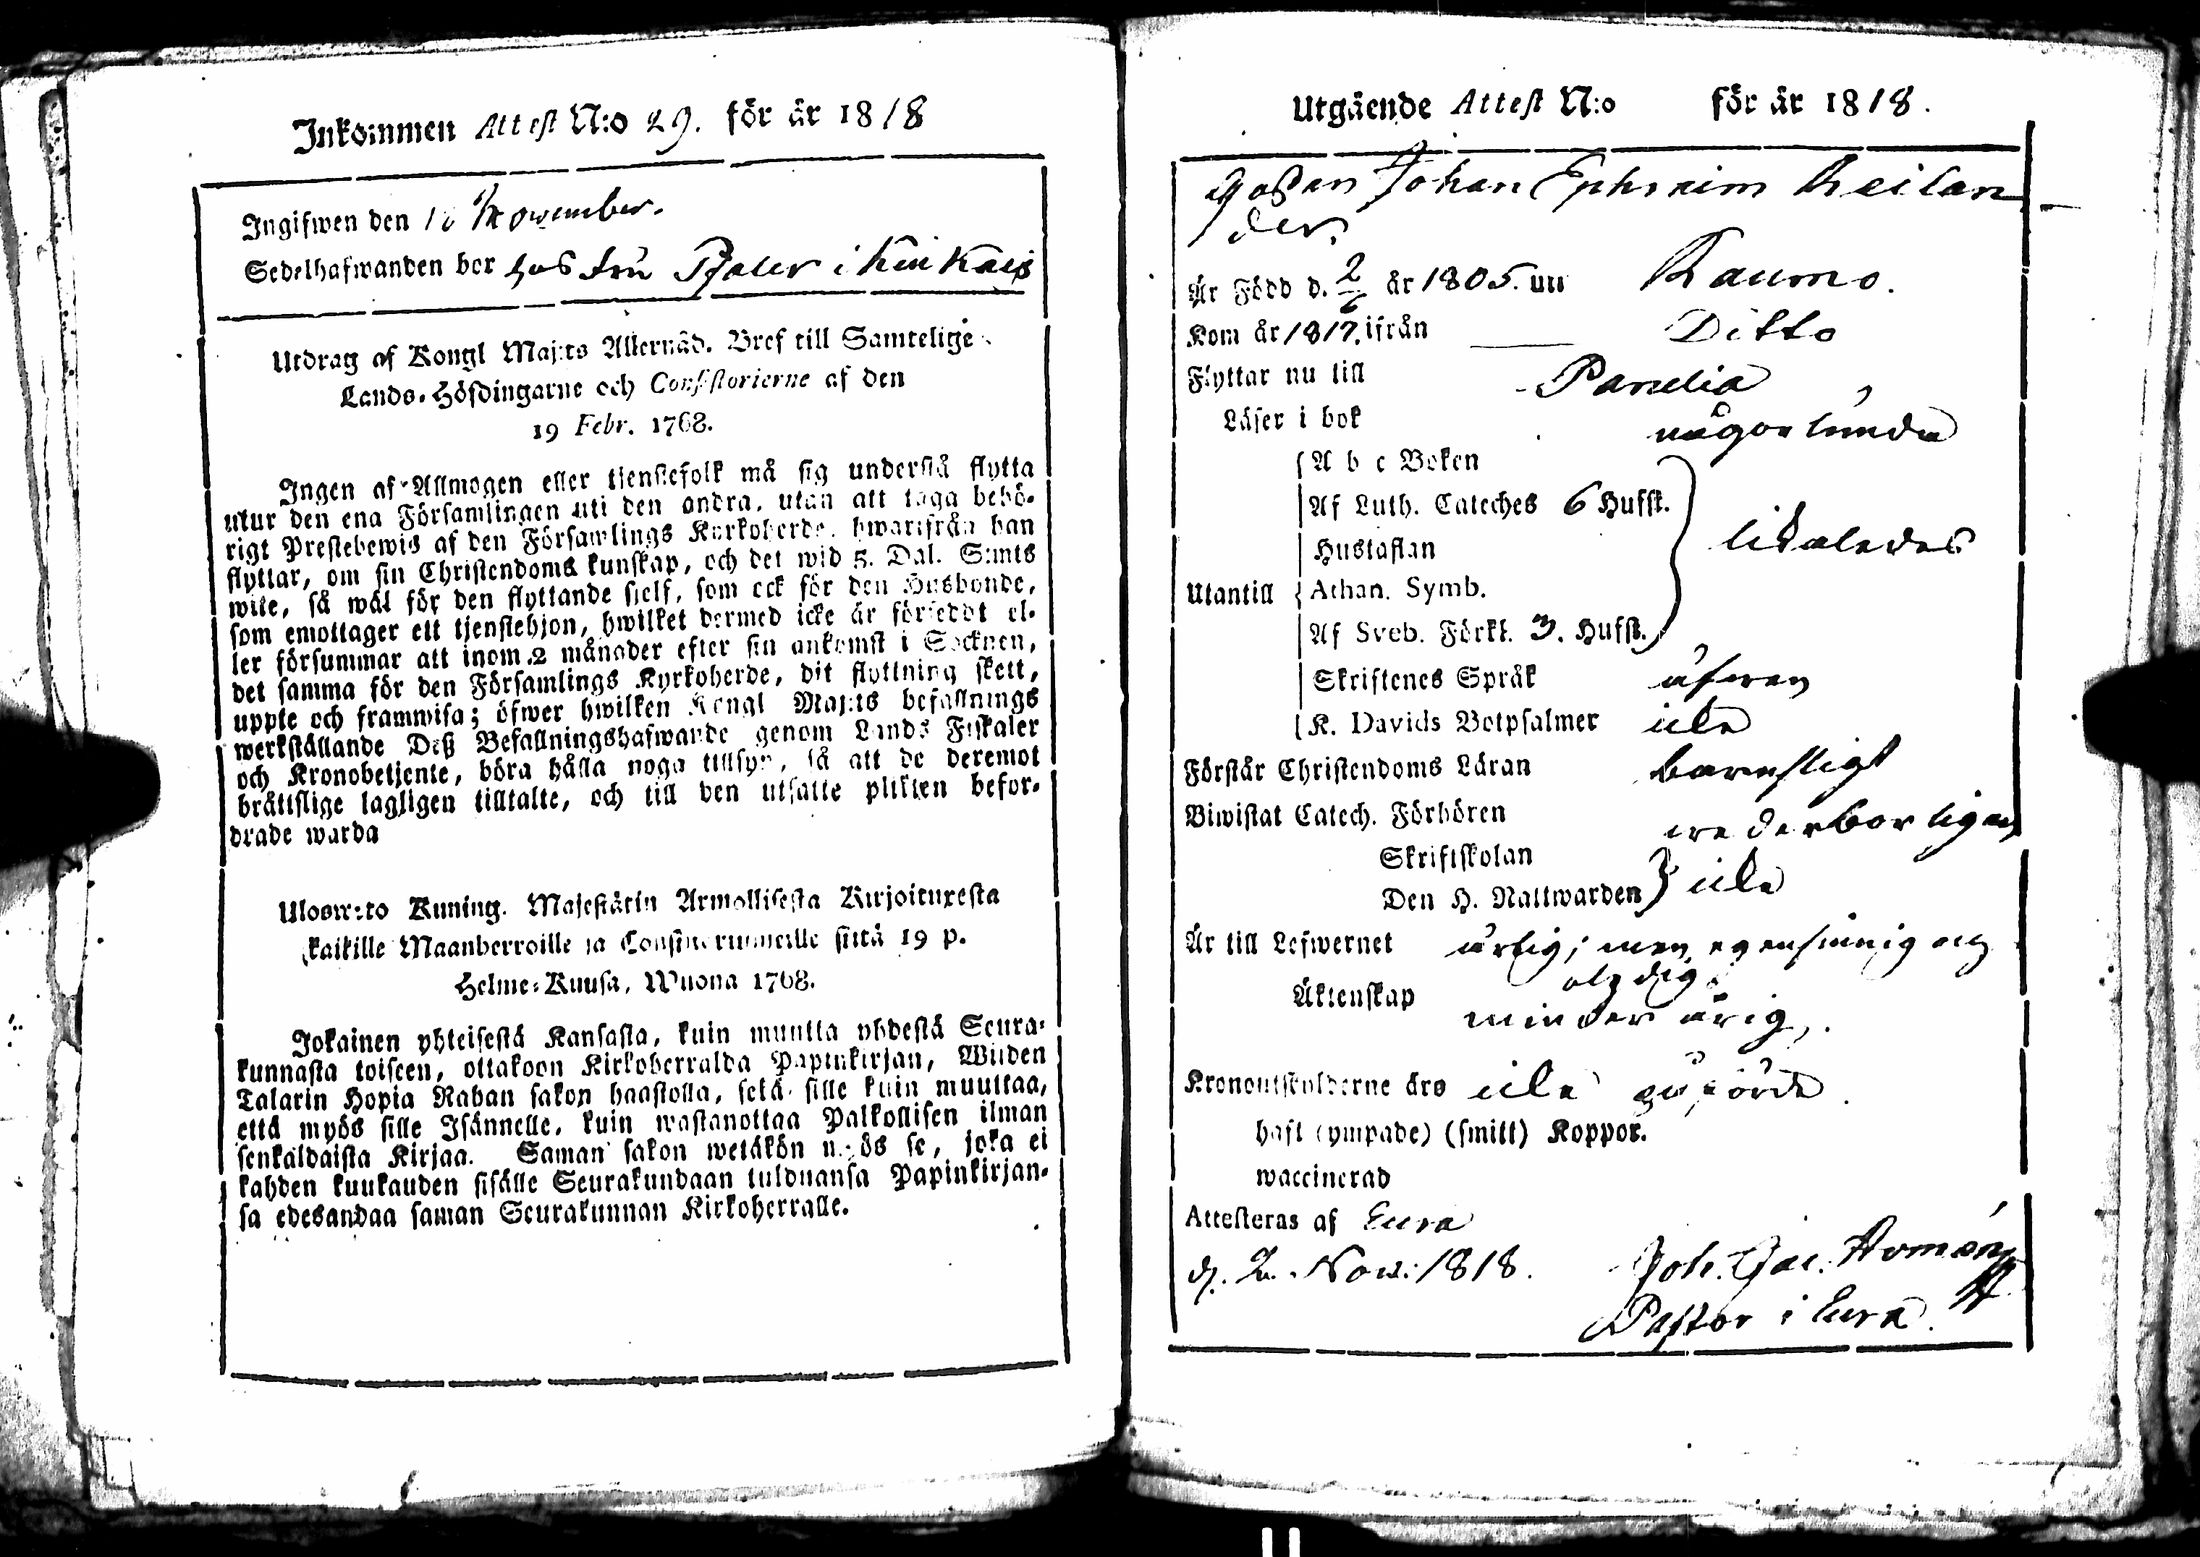 Inkommen Attest N:o 29. för år 1818
Ingifwen den 18 November.
Sedelhafwanden bor hos Fru Pfaler i Kiukais
Utdrag af Kongl Maj:ts Allernåd. Bref till Samtelige
Lands-Höfdingarne och Consistorierne af den
19 Febr. 1768.
Ingen af Allmogen eller tjenstefolk må sig understå flytta
utur den ena Församlingen uti den andra, utan att taga behö-
rigt Prestebewis af den Församlings Kyrkoherde, hwarifrån han
flyttar, om sin Christendoms kunskap, och det wid 5. Dal. S:mts
wite, så wäl för den flyttande sjelf, som ock för den Husbonde,
som emottager ett tjenstehjon, hwilket dermed icke är försedt el-
ler försummar att inom 2 månader efter sin ankomst i Socknen,
det samma för den Församlings Kyrkoherde, dit flyttning skett,
uppte och framwisa; öfwer hwilken Kongl Maj:ts befallnings
werkställande Deß Befallningshafwande genom Lands Fiskaler
och Kronobetjente, böra hålla noga tillsyn, så att de deremot
brättslige lagligen tilltalte, och till den utsatte plikten befor-
drade warda
Ulosweto Kuning. Majestätin Armollisesta Kirjoituxesta
kaikille Maanherroille ja Consistoriumeille siitä 19 p.
Helme-Kuusa, Wuona 1768.
Jokainen yhteisestä Kansasta, kuin muutta yhdestä Seura-
kunnasta toiseen, ottakoon Kirkoherralda Papinkirjan, Wiiden
Talarin Hopia Rahan sakon haastolla, sekä sille kuin muuttaa,
että myös sille Isännelle, kuin wastanottaa Palkollisen ilman
senkaldaista Kirjaa. Saman sakon wetäkön myös se, joka ei
kahden kuukauden sisälle Seurakundaan tulduansa Papinkirjan-
sa edesandaa saman Seurakunnan Kirkoherralle.
Utgående Attest N:o för år 1818.
Gossen Johan Ephraim Keilan
der.
Är Född d. 2/6 år 1805. uti Raumo.
Kom år 1817. ifrån Ditto
Flyttar nu till Panelia
Läser i bok någorlunda
Utantill
A b c Boken
Af Luth. Cateches 6 Hufst.
Hustaflan
Athan. Symb.
Af Sveb. Förkl. 3. Hufst.
likaledes
Skriftenes Språk äfwen
K. Davids Botpsalmer icke
Förstår Christendoms Läran barnsligt
Biwistat Catech. Förhören wederborligen
Skriftskolan
Den H. Nattwarden icke
Är till Lefwernet ärlig; men egensinnig och
Äktenskap minderårig,.
Kronoutskylderne äro icke påförde.
haft (ympade) (smitt) Koppor.
waccinerad
Attesteras af Eura
d. 2. Nov: 1818. Joh. Jac.
Pastor i Eura.